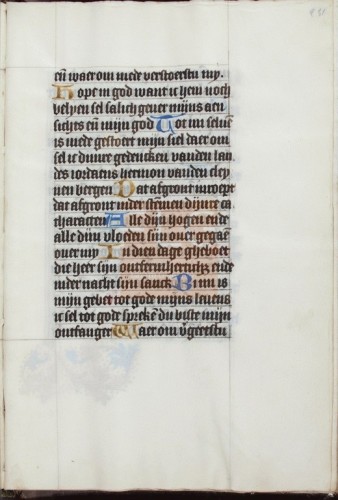 eñ waer om mede verstoerstu my.
Hope in god want ic hem noch
belyen sel salich gever mijns aen
sichts eñ mijn god Tot mi selue
is mede gestoert mijn siel daer om
sel ic dinre gedencken vanden lan
des iordaens hermon vanden cley
nen bergen Dat afgront inroept
dat afgront inder stemen dijnre ca
tharacten Alle dijn hogen ende
alle dijn vloeden sijn ouer gegaē
ouer my In dien dage gheboet
die heer sijn ontfermherticheit ende
inder nacht sijn sanck Bi mi is
mijn gebet tot gode mijns leuens
ic sel tot gode spreken du biste mijn
ontfanger Waer om vergeetstu